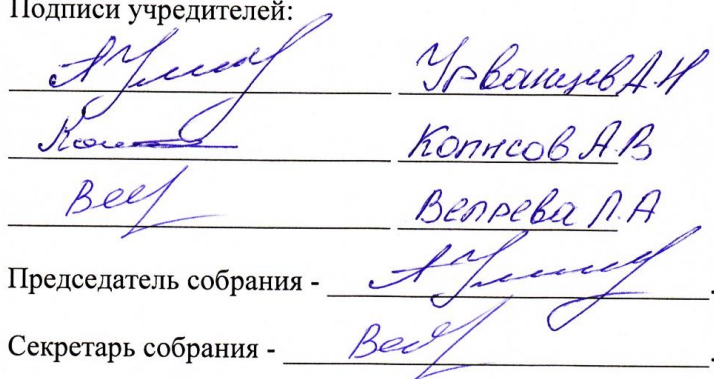 Подписи учредителей:
Урванцев А.Н
Копысов А.В
Вепрева Л.А
Председатель собрания - .
Секретарь собрания - .